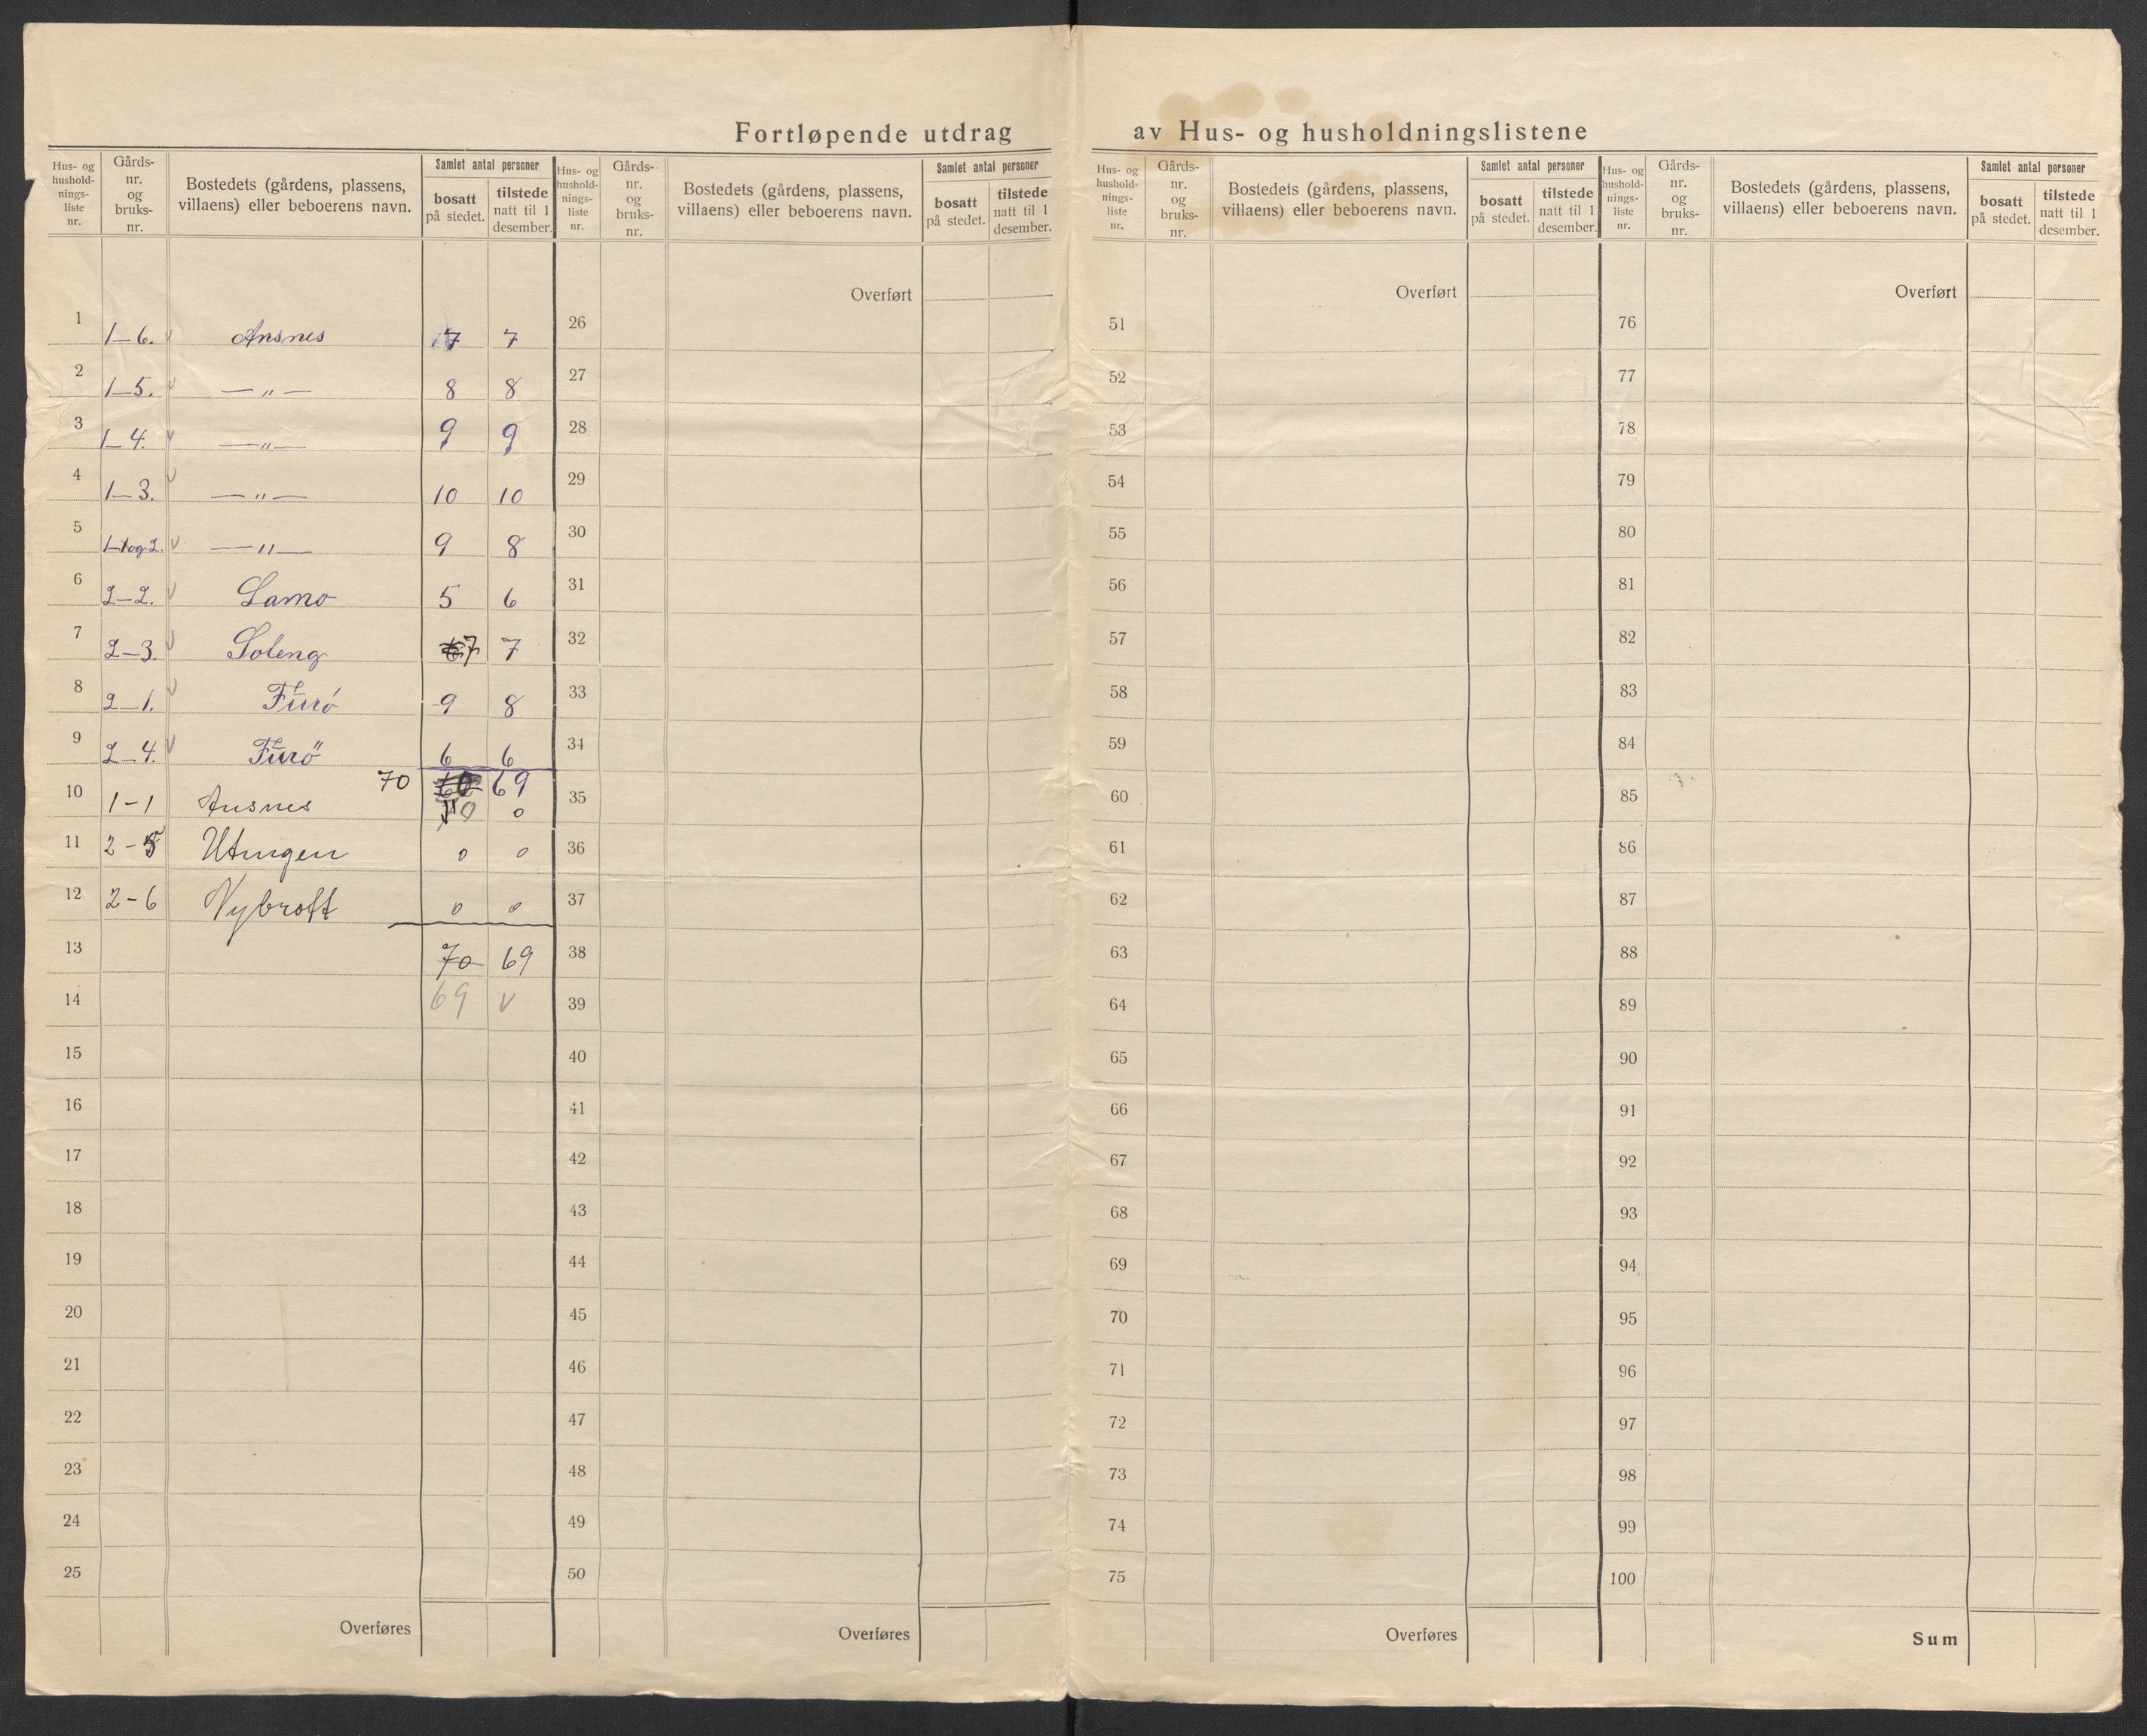 Fortløpende utdrag av Hus- og husholdningslistene
Hus- og hushold-nings-liste nr. | Gårds-nr. og bruks-nr. | Bostedets (gårdens, plassens, villaens) eller beboerens navn. | Samlet antal personer | bosatt på stedet. | tilstede natt til 1 desember.
1 1–6. v Ansnes 7 7
2 1–5. v — „ — 8 8
3 1–4. v — „ — 9 9
4 1–3. v — „ — 10 10
5 1–1og2. v — „ — 9 8
6 2–2. v Lamo 5 6
7 2–3. v Soleng 7 7
8 2–1. v Furö 9 8
9 2–4. v Furö 6 6
70 69
10 1–1 Ansnes 0 0
11 2–5 Utengen 0 0
12 2–6 Nybrott 0 0
13 70 69
14 69 v
15
16
17
18
19
20
21
22
23
24
25
Overføres
Hus- og hushold-nings-liste nr. | Gårds-nr. og bruks-nr. | Bostedets (gårdens, plassens, villaens) eller beboerens navn. | Samlet antal personer | bosatt på stedet. | tilstede natt til 1 desember.
Overført
26
27
28
29
30
31
32
33
34
35
36
37
38
39
40
41
42
43
44
45
46
47
48
49
50
Overføres
Hus- og hushold-nings-liste nr. | Gårds-nr. og bruks-nr. | Bostedets (gårdens, plassens, villaens) eller beboerens navn. | Samlet antal personer | bosatt på stedet. | tilstede natt til 1 desember.
Overført
51
52
53
54
55
56
57
58
59
60
61
62
63
64
65
66
67
68
69
70
71
72
73
74
75
Overføres
Hus- og hushold-nings-liste nr. | Gårds-nr. og bruks-nr. | Bostedets (gårdens, plassens, villaens) eller beboerens navn. | Samlet antal personer | bosatt på stedet. | tilstede natt til 1 desember.
Overført
76
77
78
79
80
81
82
83
84
85
86
87
88
89
90
91
92
93
94
95
96
97
98
99
100
Sum